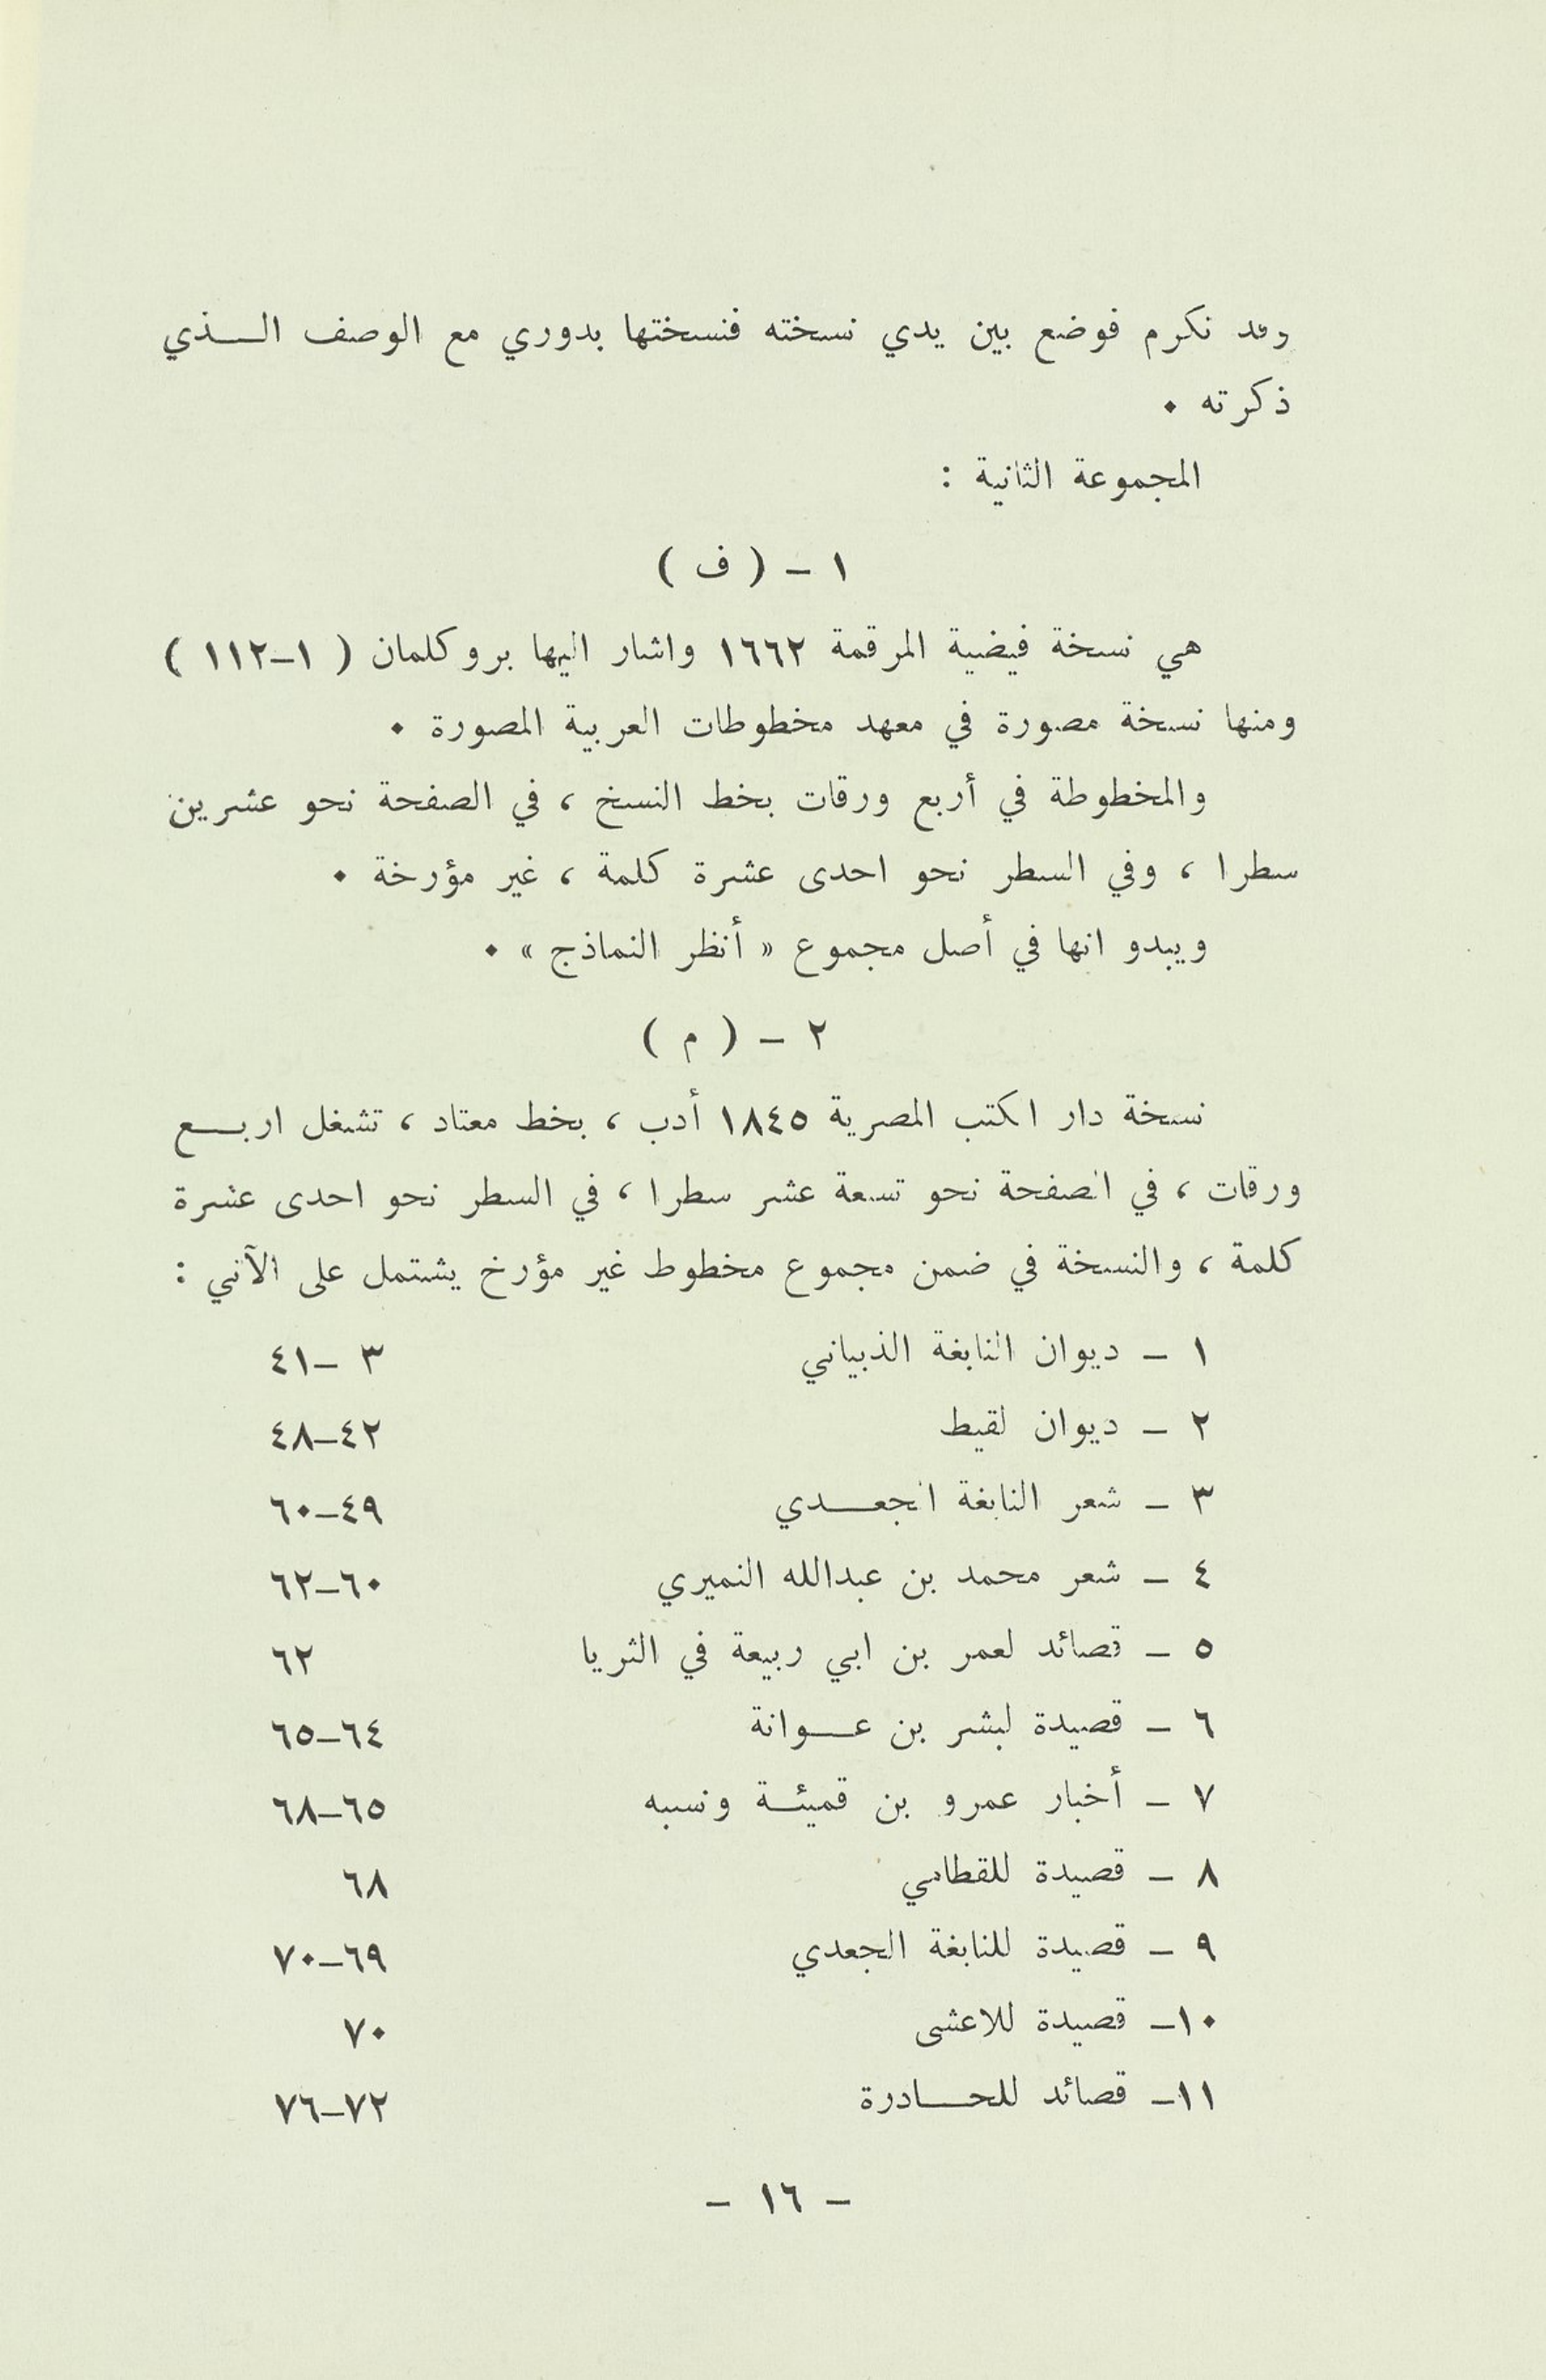 وقد تكرم فوضع بين يدي نسخته فنسختها بدوري مع الوصف الـــذي
ذكرته ٠
المجموعة الثانية :
١ – ( ف )
هي نسخة فيضية المرقمة ١٦٦٢ واشار اليها بروكلمان ( ١–١١٢ )
ومنها نسخة مصورة في معهد مخطوطات العربية المصورة ٠
والمخطوطة في أربع ورقات بخط النسخ ، في الصفحة نحو عشرين
سطرا ، وفي السطر نحو احدى عشرة كلمة ، غير مؤرخة ٠
ويبدو انها في أصل مجموع « أنظر النماذج » ٠
٢ – ( م )
نسخة دار الكتب المصرية ١٨٤٥ أدب ، بخط معتاد ، تشغل اربـــع
ورقات ، في الصفحة نحو تسعة عشر سطرا ، في السطر نحو احدى عشرة
كلمة ، والنسخة في ضمن مجموع مخطوط غير مؤرخ يشتمل على الآتي :
١ – ديوان النابغة الذبياني ٣ –٤١
٢ – ديوان لقيط ٤٢–٤٨
٣ – شعر النابغة الجعـــدي ٤٩–٦٠
٤ – شعر محمد بن عبدالله النميري ٦٠–٦٢
٥ – قصائد لعمر بن ابي ربيعة في الثريا ٦٢
٦ – قصيدة لبشر بن عـــوانة ٦٤–٦٥
٧ – أخبار عمرو بن قميئـــة ونسبه ٦٥–٦٨
٨ – قصيدة للقطامي ٦٨
٩ – قصيدة للنابغة الجعدي ٦٩–٧٠
١٠– قصيدة للاعشى ٧٠
١١– قصائد للحـــادرة ٧٢–٧٦
– ١٦ –